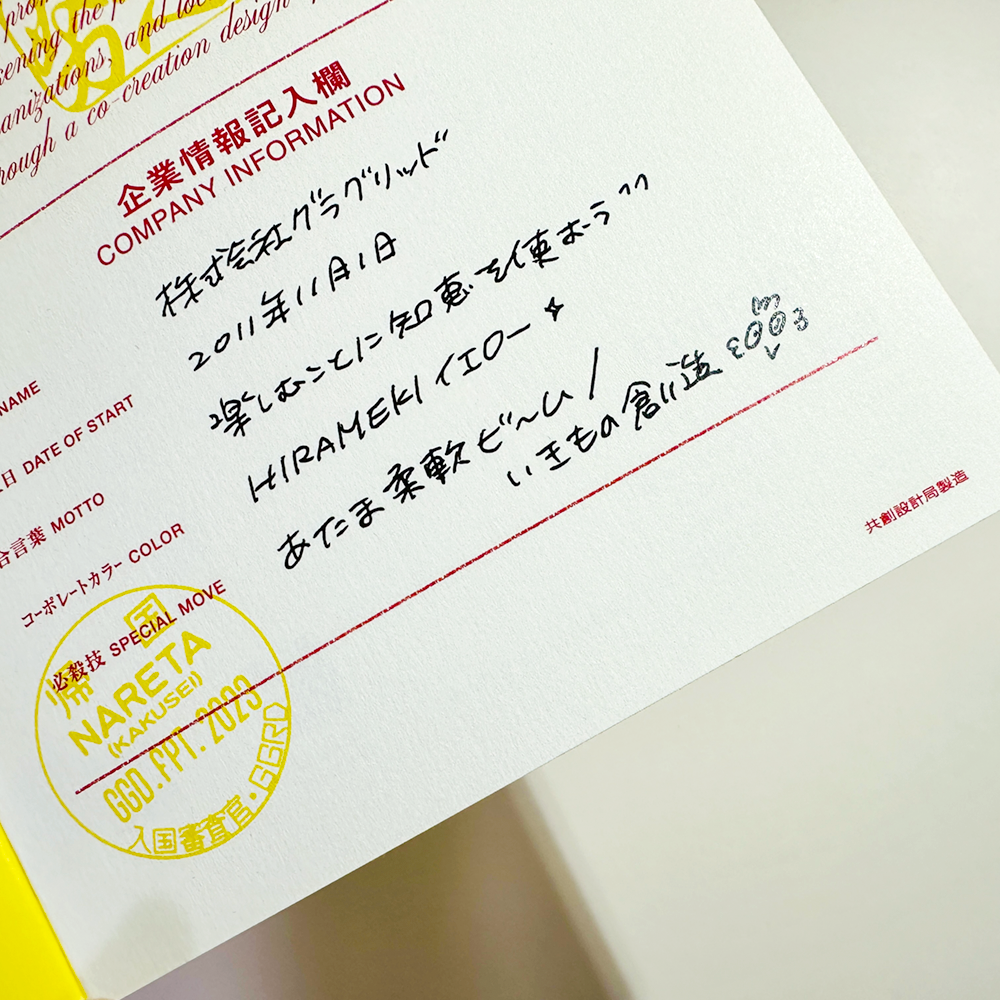 ening the p
anizations, and loc
rough a co-creation design
企業情報記入欄
COMPANY INFORMATION
NAME 株式会社グラグリッド
日 DATE OF START 2011年11月1日
合言葉 MOTTO 楽しむことに知恵を使おう"
コーポレートカラー COLOR HIRAMEKIイエロー
必殺技 SPECIAL MOVE あたま柔軟ビーム/
いきもの創造
共創設計局製造
帰国
NARETA
(KAKUSEI)
GGD.FPT.2023
入国審査官・GGRD